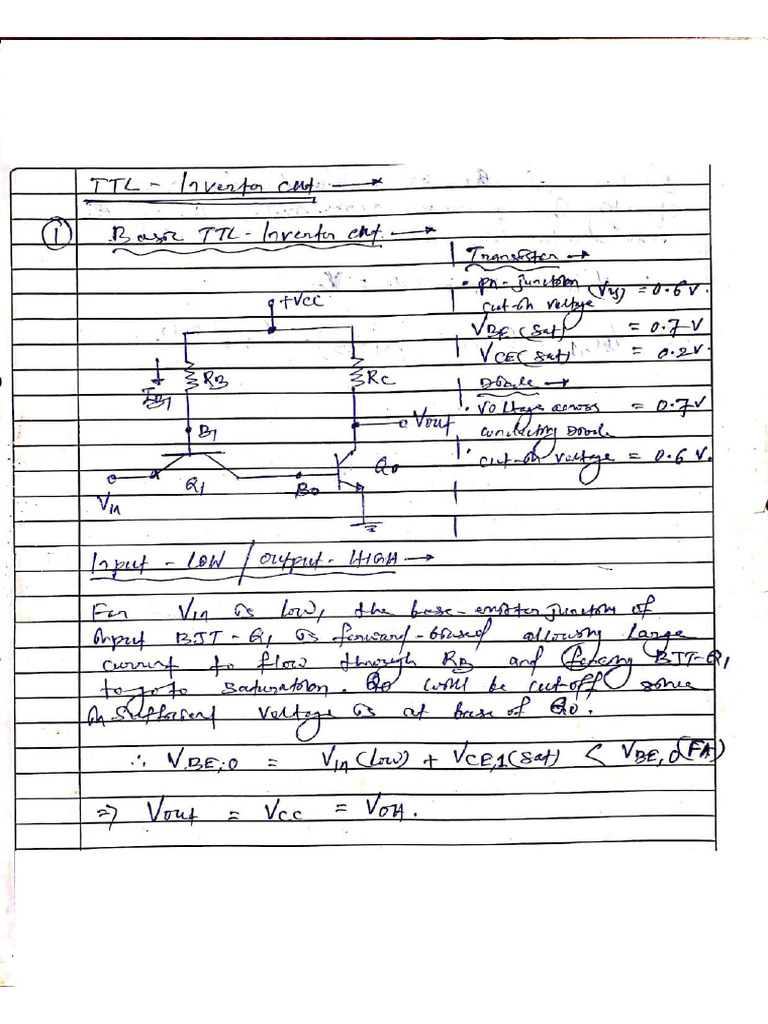 TTL - Inverter ckt. →
① Basic TTL - Inverter ckt. →
Transistor →
• pn-junction (Vγ) = 0.6 V.
cut-in voltage
VBE (sat) = 0.7 V
VCE (sat) = 0.2 V.
Diode →
• voltage across = 0.7 V
conducting Diode
• cut-in voltage = 0.6 V.
+VCC
RB
RC
IB1
B1
Vout
Q1
B0
Q0
VIN
Input - LOW / output - HIGH →
For VIN is low, the base-emitter junction of
input BJT-Q1 is forward-biased allowing large
current to flow through RB and forcing BJT-Q1
to go to saturation. Q0 will be cut-off since
insufficient voltage is at base of Q0.
∴ VBE,0 = VIN (low) + VCE,1 (sat) < VBE,0 (FA)
⇒ Vout = VCC = VOH.